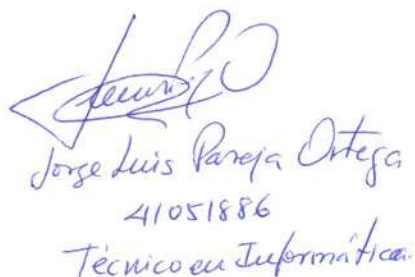 Jorge Luis Pareja Ortega
41051886
Técnico en Informática